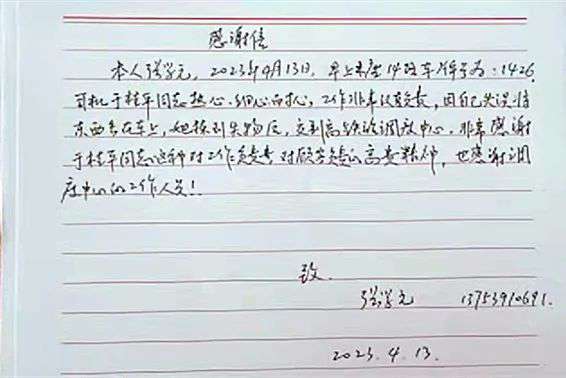 感谢信
本人张学元，2023年4月13日，早上乘座14路车车牌号为：1426，
司机于桂平同志热心、细心而耐心，工作非常认真负责，因自己失误将
东西丢在车上，她拣到失物后，交到高铁站调度中心，非常感谢
于桂平同志这种对工作负责，对顾客负责的高贵精神，也感谢调
度中心的工作人员！
致
张学元 13753910691.
2023.4.13.